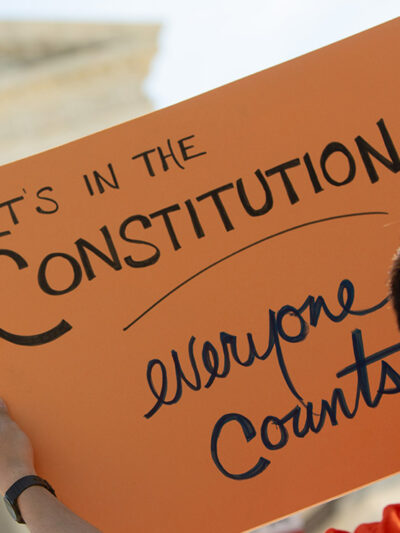 T'S IN THE
CONSTITUTION
everyone
Counts